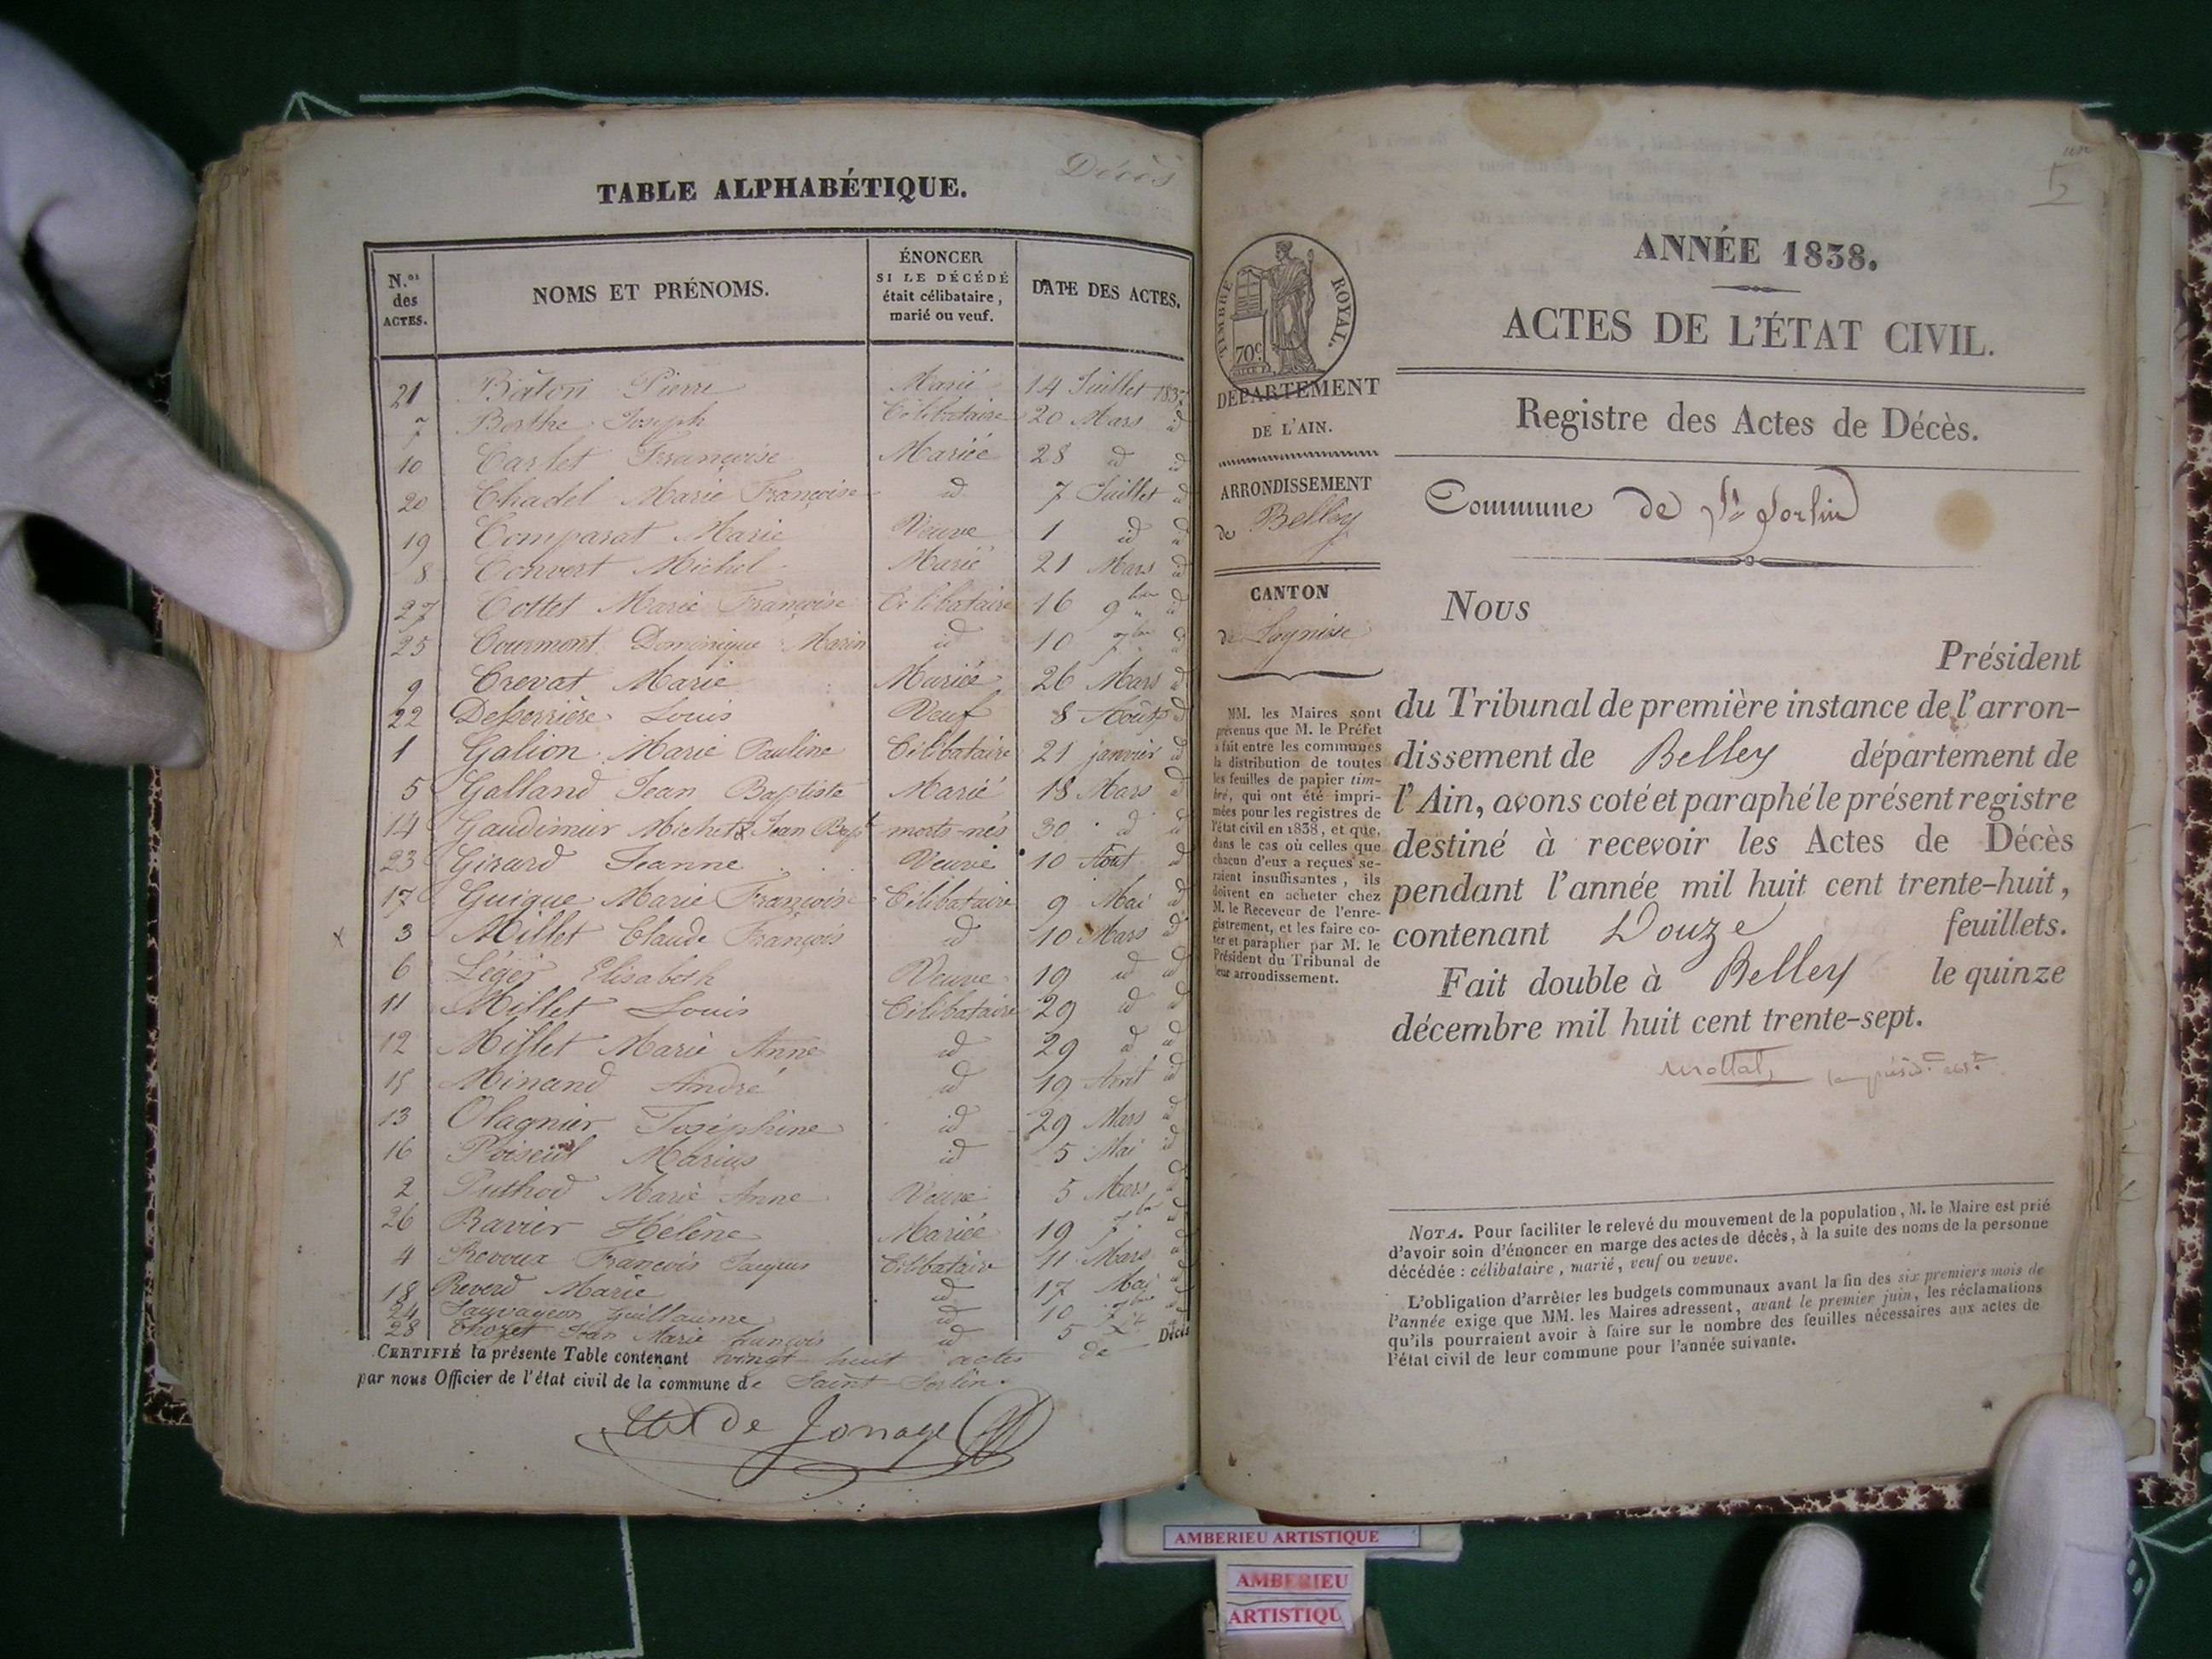 Décès
TABLE ALPHABÉTIQUE.
N.os des ACTES.
NOMS ET PRÉNOMS.
ÉNONCER SI LE DÉCÉDÉ était célibataire, marié ou veuf.
DATE DES ACTES.
21 Bâton Pierre Marié 14 Juillet 1837
7 Berthe Joseph Célibataire 20 Mars id
10 Carlet Françoise Mariée 28 id id
20 Chadel Marie Françoise id 7 Juillet id
19 Comparat Marie Veuve 1 id id
8 Convert Michel Marié 21 Mars id
27 Cottet Marie Françoise Célibataire 16 9bre id
25 Courmont Dominique Marin id 10 7bre id
9 Crevat Marie Mariée 26 Mars id
22 Deserrière Louis Veuf 8 Août id
1 Galion Marie Pauline Célibataire 21 janvier id
5 Galland Jean Baptiste Marié 18 Mars id
14 Gaudimur Michel & Jean Bapt morts-nés 30 id id
23 Girard Jeanne Veuve 10 Aout id
17 Guigue Marie Françoise Célibataire 9 Mai id
x 3 Millet Claude François id 10 Mars id
6 Léger Elisabeth Veuve 19 id id
11 Millet Louis Célibataire 29 id id
12 Millet Marie Anne id 29 id id
15 Minand André id 19 Avril id
13 Olagnier Joséphine id 29 Mars id
16 Poiseul Marius id 5 Mai id
2 Puthod Marie Anne Veuve 5 Mars id
26 Ravier Hélène Mariée 19 7bre id
4 Revoux François Jacques Célibataire 11 Mars id
18 Reverd Marie id 17 Mai id
24 Sauvageon Guillaume id 10 7bre id
28 Thozet Jean Marie François id 5 Xbre
CERTIFIÉ la présente Table contenant vingt huit actes de Décès
par nous Officier de l'état civil de la commune de Saint Sorlin.
de Jonage
un
ANNÉE 1838.
ACTES DE L'ÉTAT CIVIL.
Registre des Actes de Décès.
Commune de St Sorlin
TIMBRE ROYAL.
70c
DÉPARTEMENT
DE L'AIN.
ARRONDISSEMENT
de Belley
CANTON
de Lagnieu
MM. les Maires sont
prévenus que M. le Préfet
a fait entre les communes
la distribution de toutes
les feuilles de papier tim-
bré, qui ont été impri-
mées pour les registres de
l'état civil en 1838, et que,
dans le cas où celles que
chacun d'eux a reçues se-
raient insuffisantes, ils
doivent en acheter chez
M. le Receveur de l'enre-
gistrement, et les faire co-
ter et parapher par M. le
Président du Tribunal de
leur arrondissement.
Nous
Président
du Tribunal de première instance de l'arron-
dissement de Belley département de
l'Ain, avons coté et paraphé le présent registre
destiné à recevoir les Actes de Décès
pendant l'année mil huit cent trente-huit,
contenant Douze feuillets.
Fait double à Belley le quinze
décembre mil huit cent trente-sept.
NOTA. Pour faciliter le relevé du mouvement de la population, M. le Maire est prié
d'avoir soin d'énoncer en marge des actes de décès, à la suite des noms de la personne
décédée : célibataire, marié, veuf ou veuve.
L'obligation d'arrêter les budgets communaux avant la fin des six premiers mois de
l'année exige que MM. les Maires adressent, avant le premier juin, les réclamations
qu'ils pourraient avoir à faire sur le nombre des feuilles nécessaires aux actes de
l'état civil de leur commune pour l'année suivante.
AMBERIEU ARTISTIQUE
AMBERIEU
ARTISTIQU